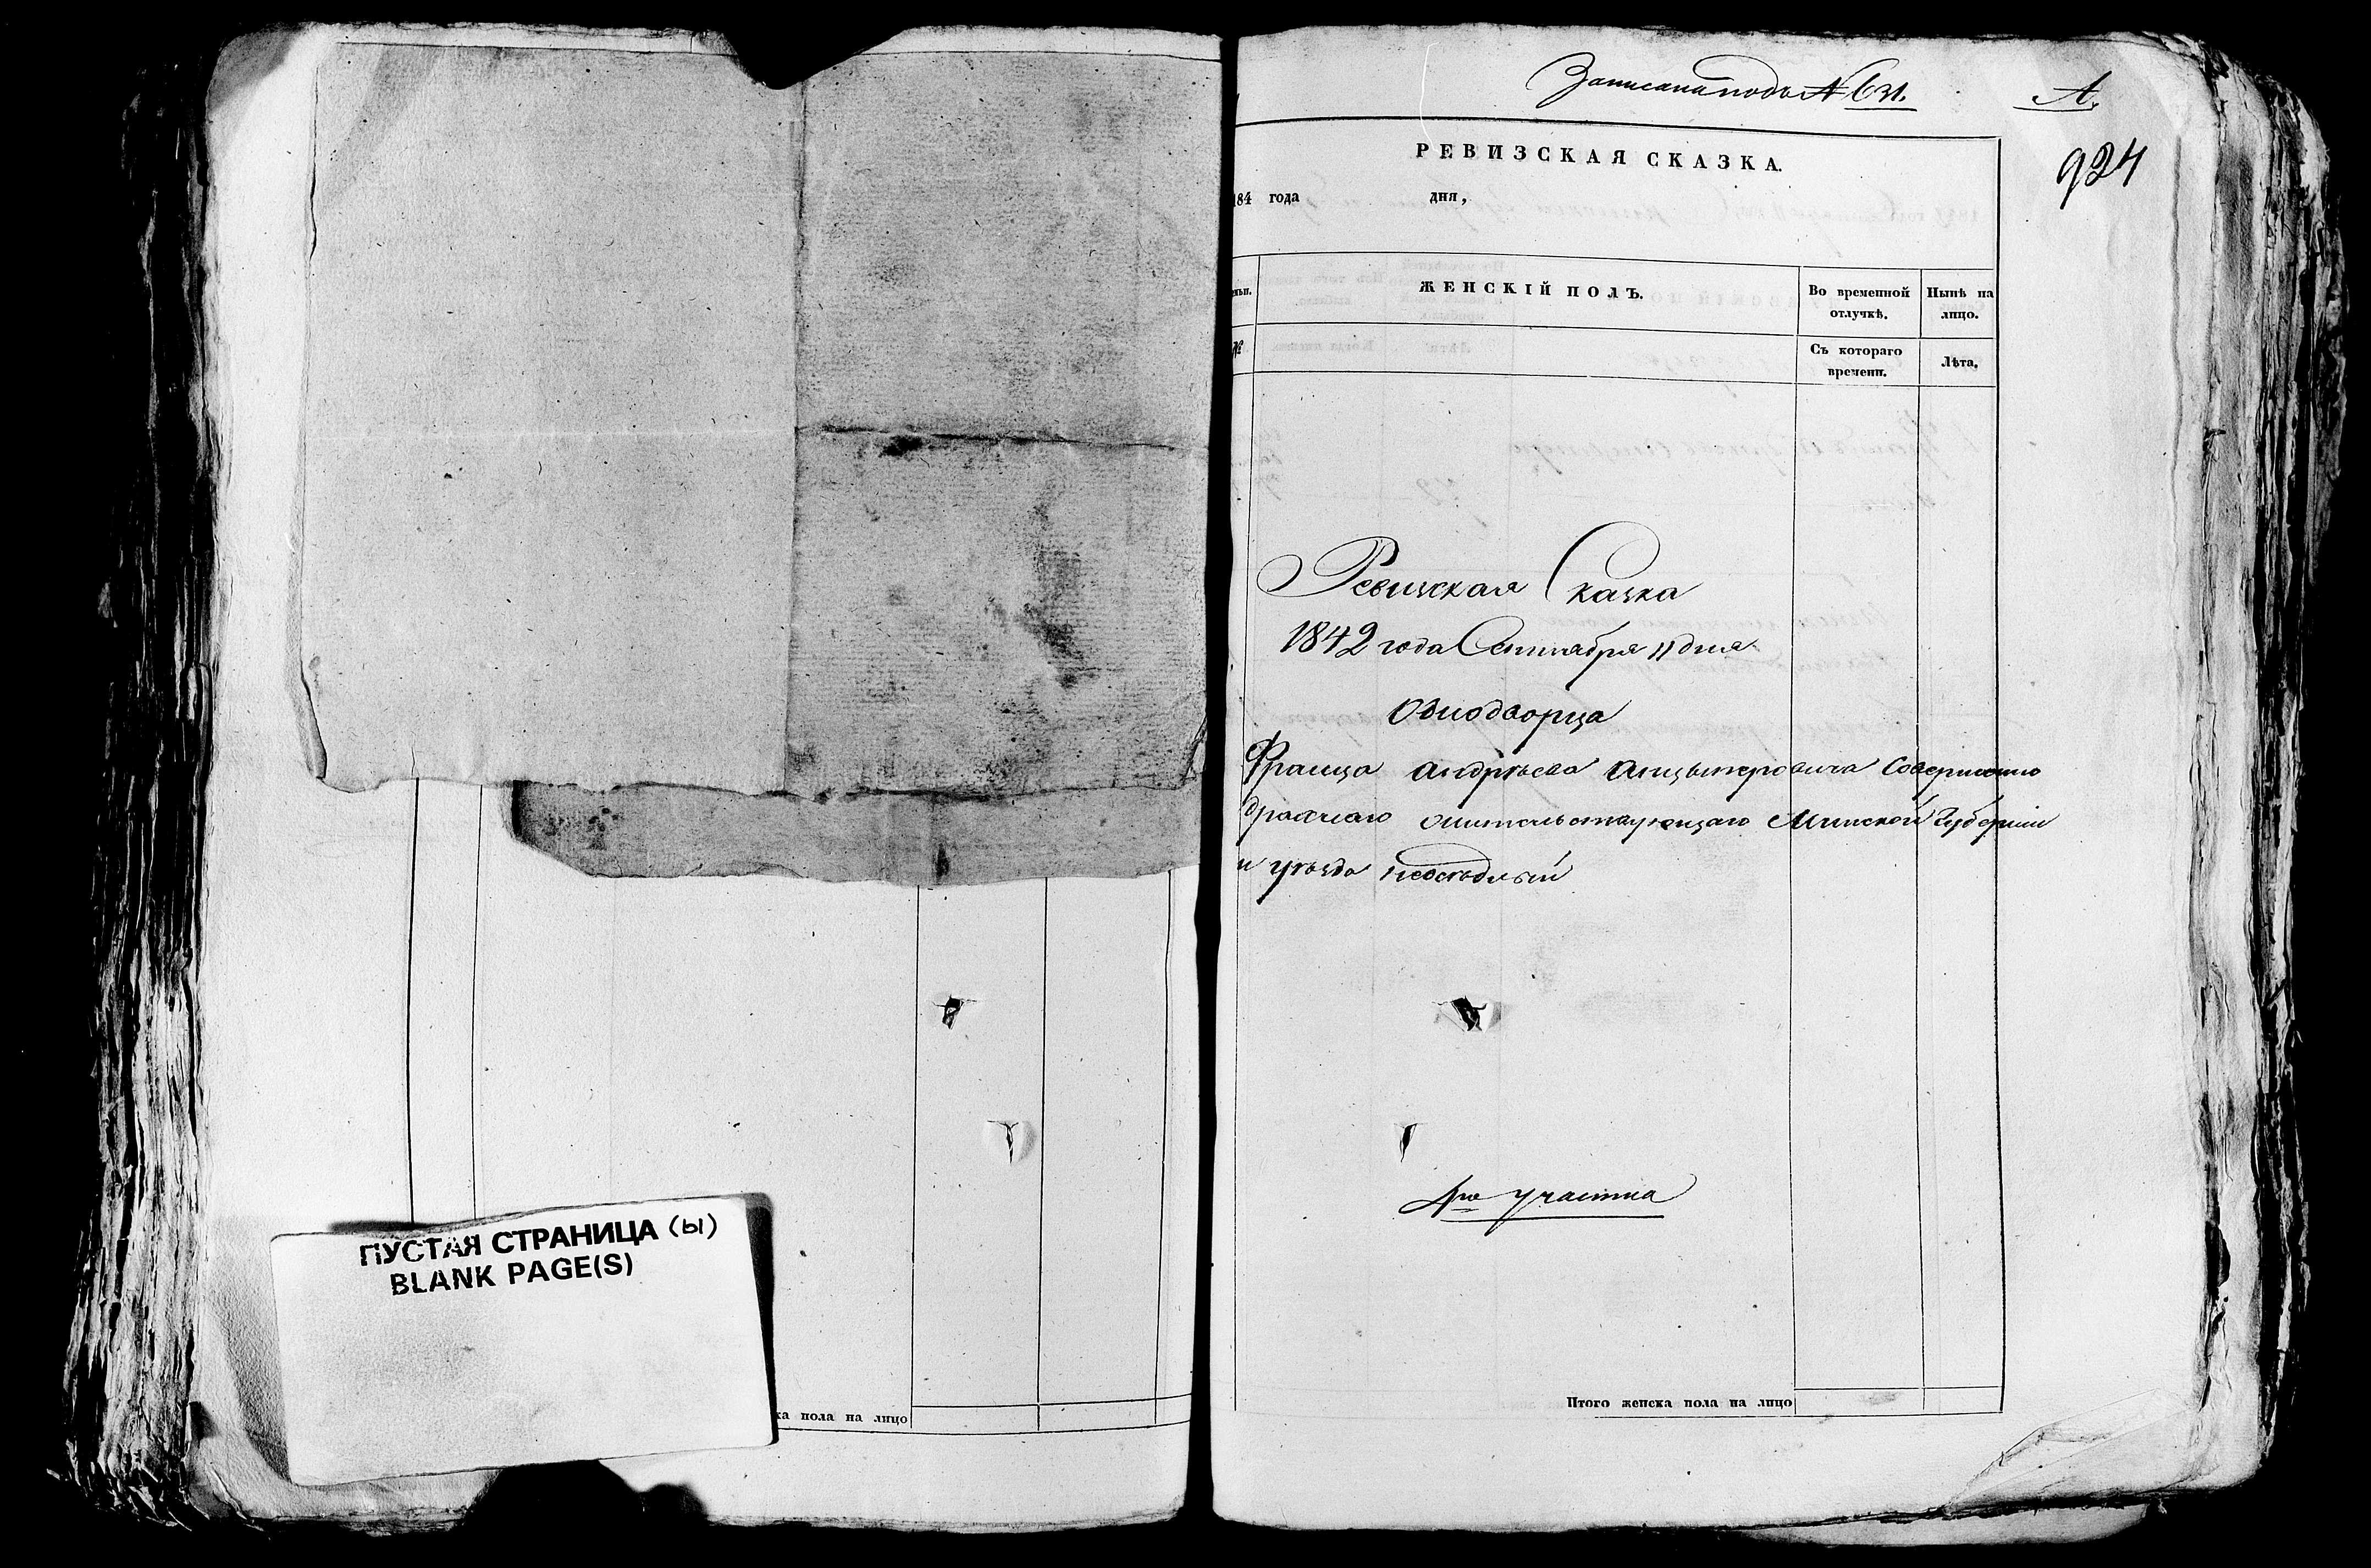 ПУСТАЯ СТРАНИЦА (ы)
BLANK PAGE(S)
ка пола на лицо
Записана подъ № 631.
А.
924
РЕВИЗСКАЯ СКАЗКА.
184 года дня,
ЖЕНСКІЙ ПОЛЪ.
Во временной отлучкѣ.
Нынѣ на лицо.
№
Съ котораго времени.
Лѣта.
Ревизская Сказка
1842 года Сентября 11 дня
Однодворца
Франца Андрѣева Анцыперовича Совершенно
жительствующаго Минской Губерніи
и уѣзда
1го участка
Итого женска пола на лицо